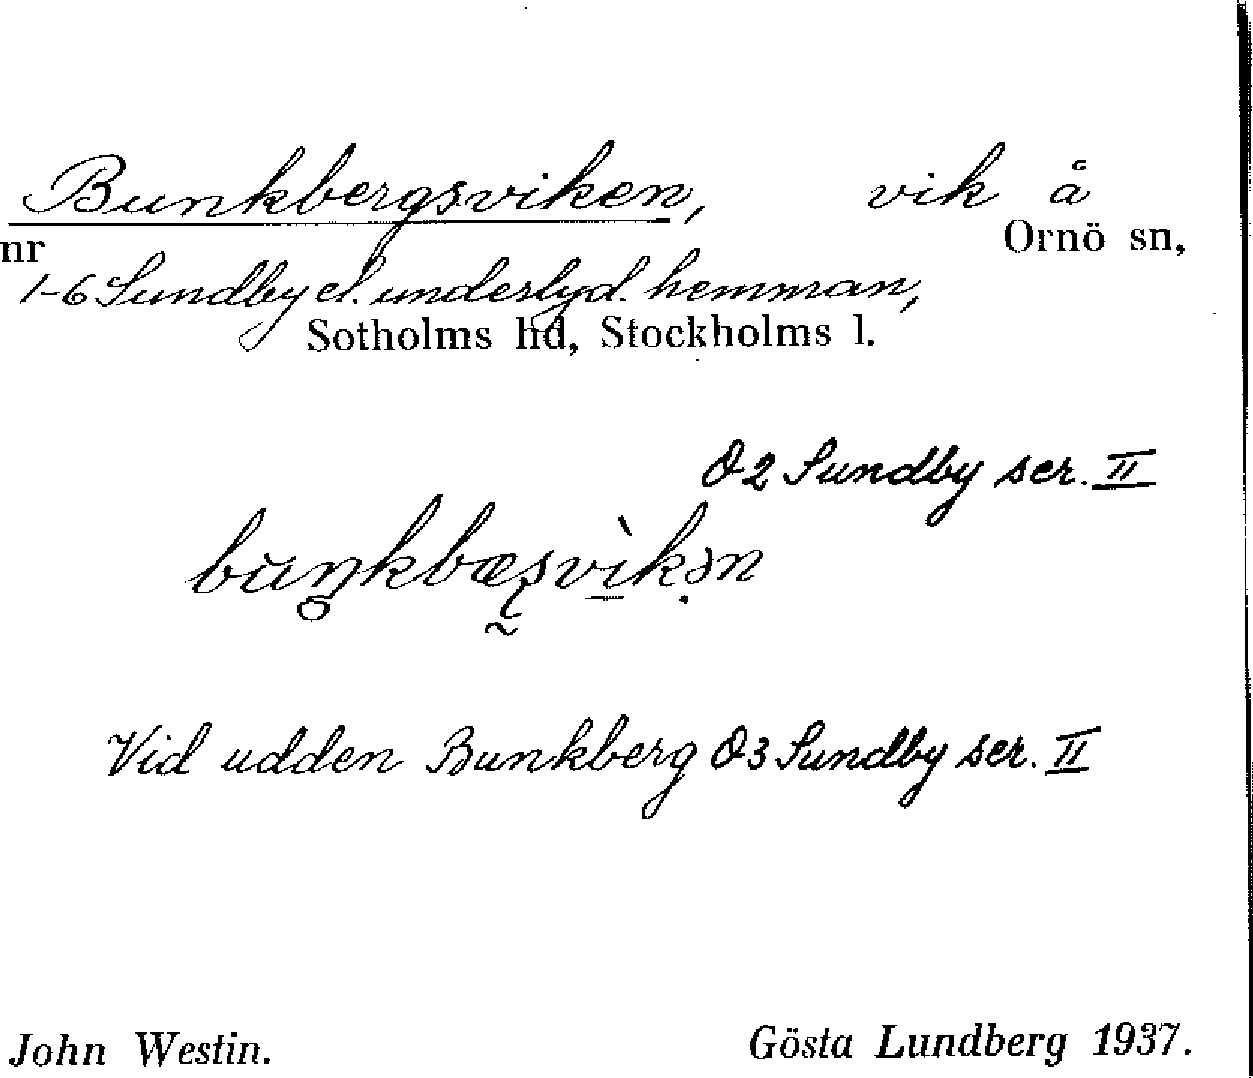 Bunkbergsviken, vik å
nr Ornö sn,
1-6 Sundby el. underlyd. hemman,
Sotholms hd, Stockholms l.
Ö2 Sundby ser. II
Vid udden Bunkberg Ö3 Sundby ser. II
John Westin. Gösta Lundberg 1937.